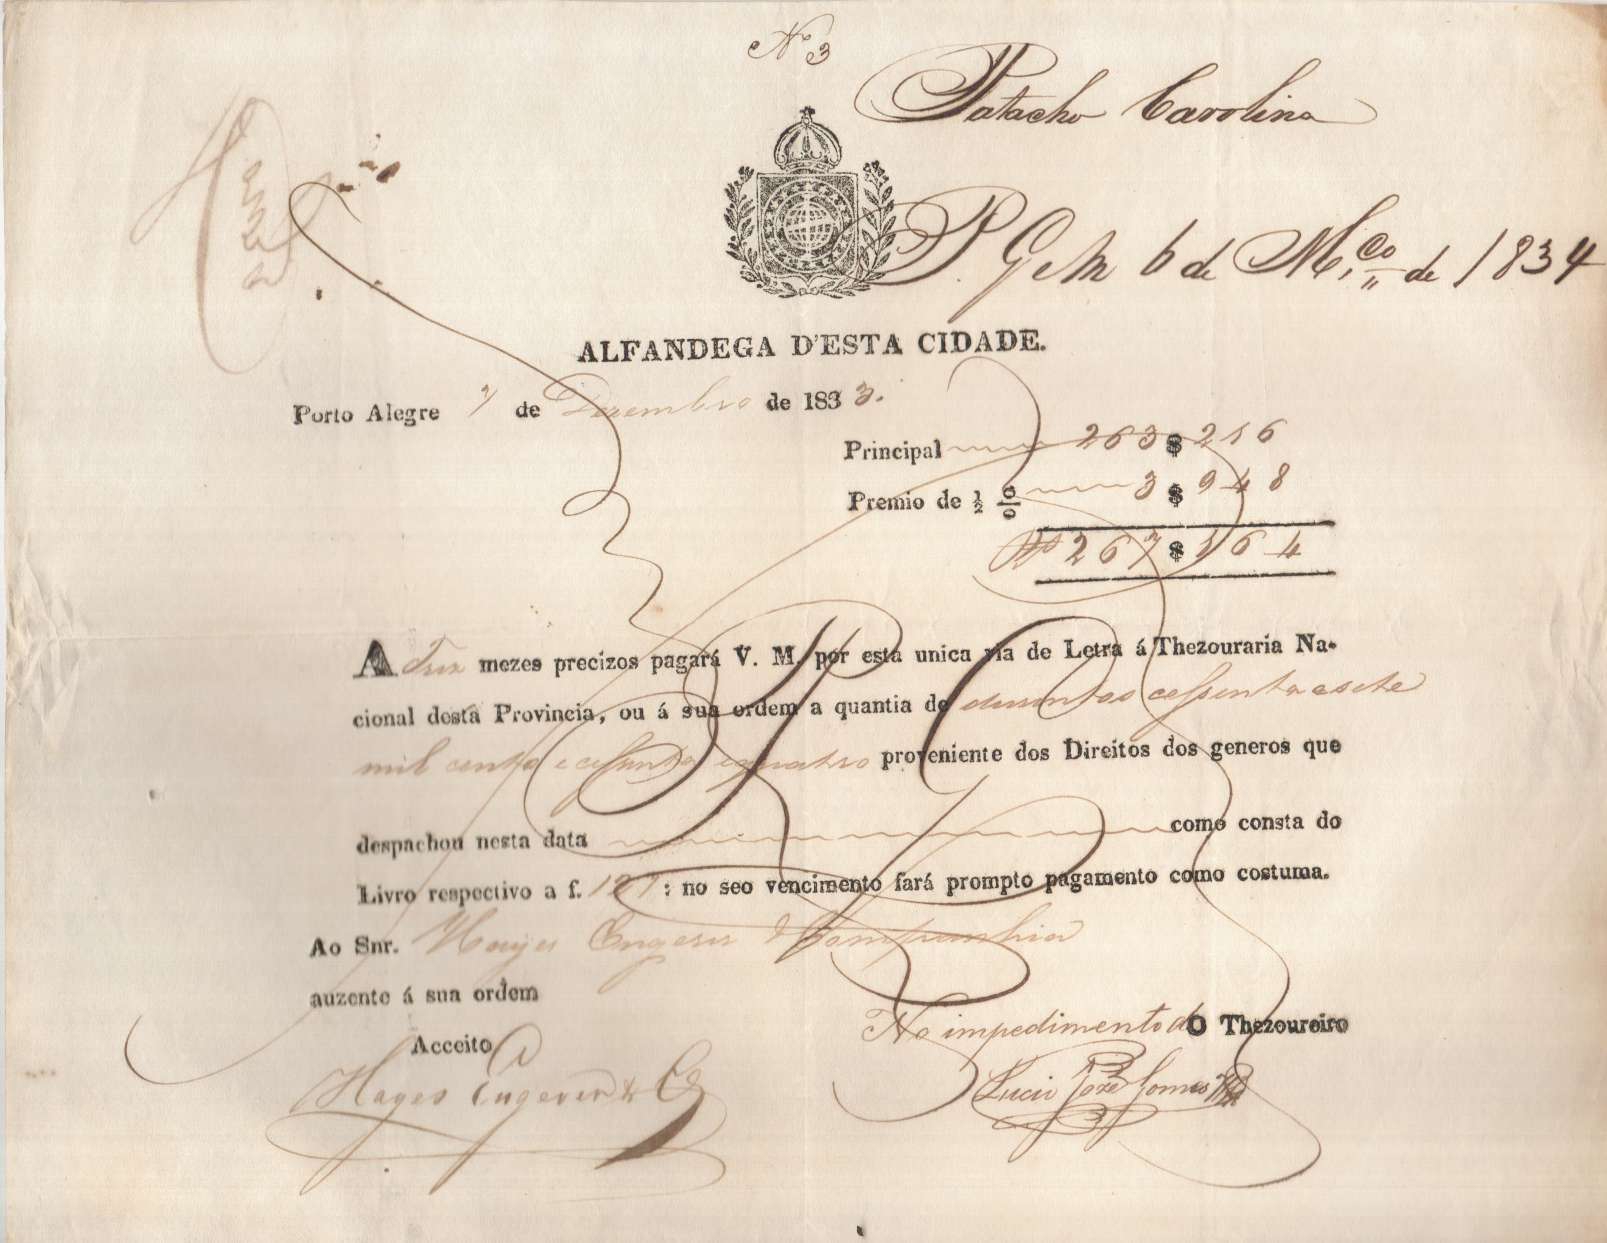 Nº 3
Patacho Carolina
P. G em 6 de M.ço de 1834
ALFANDEGA D'ESTA CIDADE.
Porto Alegre 7 de Dezembro de 1833.
Principal 263$216
Premio de ½ % 3$948
Rs 267$164
A Tres mezes precizos pagará V. M. por esta unica via de Letra á Thezouraria Na-
cional desta Provincia, ou á sua ordem a quantia de duzentos cessenta e sete
mil cento e cessenta e quatro proveniente dos Direitos dos generos que
despachou nesta data como consta do
Livro respectivo a f. : no seo vencimento fará prompto pagamento como costuma.
Ao Snr. Hayes Engerer & Companhia
auzente á sua ordem
No impedimento do O Thezoureiro
Acceito
Hayes Engerer & Cª
Lucio Joze Gomes